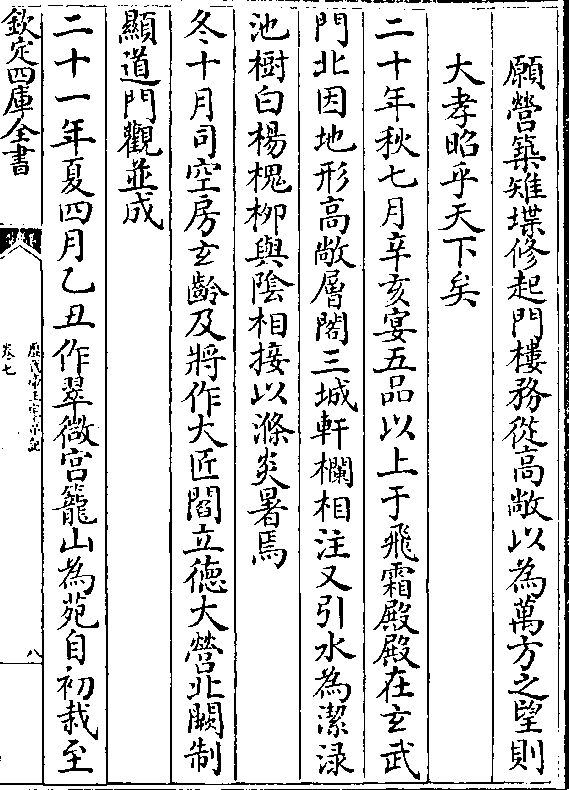 願營築雉堞修起門樓務從高敞以為萬方之望則
大孝昭乎天下矣
二十年秋七月辛亥宴五品以上于飛霜殿殿在玄武
門北因地形高敞層閣三城軒欄相注又引水為潔渌
池樹白楊槐栁與陰相接以滌炎暑焉
冬十月司空房玄齡及將作大匠閻立德大營北闕制
顯道門觀並成
二十一年夏四月乙丑作翠微宫籠山為苑自初裁至
欽定四庫全書
歴代帝王宅京記
卷七
八